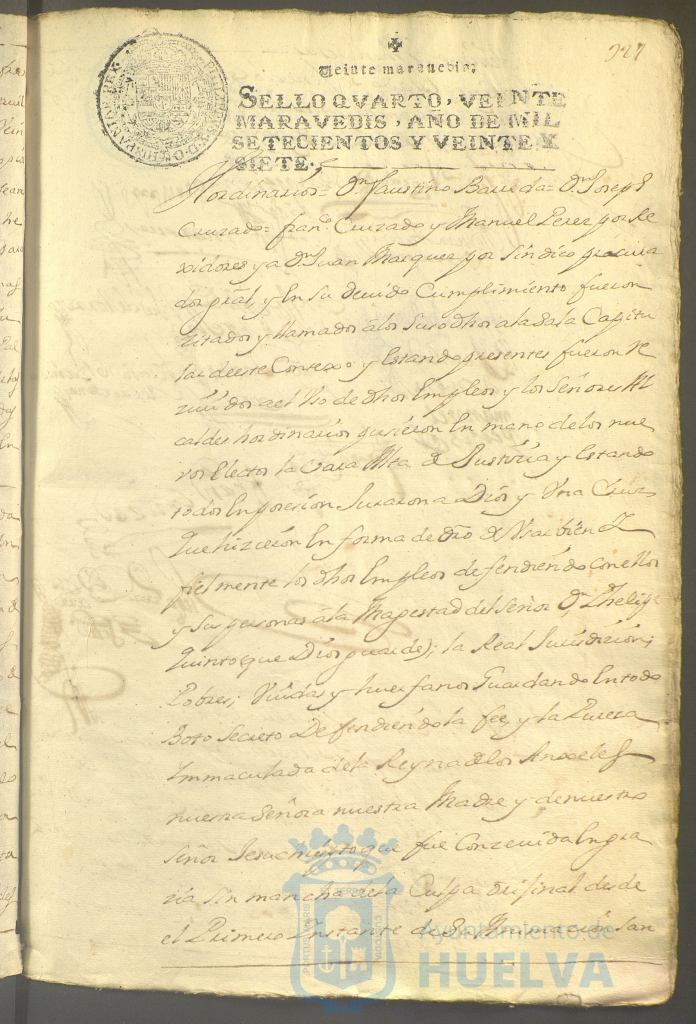 327
Veinte maravedis.
SELLO QVARTO, VEINTE
MARAVEDIS, AÑO DE MIL
SETECIENTOS Y VEINTE Y
SIETE.
PHILIPPUS V D G HISPANIAR REX
Hordinarios = Dn faustino Barreda = Dn Joseph
Cruzado = franco Cruzado y Manuel Perez por Re
xidores y a Dn Juan Marquez por sindico procura
dor gral, y En su devido Cumplimiento fueron
zitados y llamados a los suso dhos a la Sala Capitu
lar de este Conzexo y Estando presentes fueron re
zivídos a el Vso de dhos Empleos y los Señores Al
caldes hordinarios pusieron En mano de los nue
vos Electos la Vara Alta de Justizia y Estando
todos En posesion Juraron a Dios y Vna Cruz
que hizieron En forma de dro de Vsar bien I
fielmente los dhos Empleos defendiendo con ellos
y sus personas a la Magestad del Señor Dn Phelipe
Quinto (que Dios guarde); la Real Jurisdizion;
Pobres; Viudas y huerfanos Guardando En todo
Boto Secreto Defendiendo la fee y la Pureza
Immaculada de la Reyna de los Anxeles
nuestra Señora nuestra Madre y de nuestro
Señor Jesuchristo que fue Conzevida En gra
zia sin mancha de la Culpa orijinal desde
el Primero Instante de su Animacion San
PORTUS MARIS ET TERRE CUSTODIA
Ayuntamiento de
HUELVA